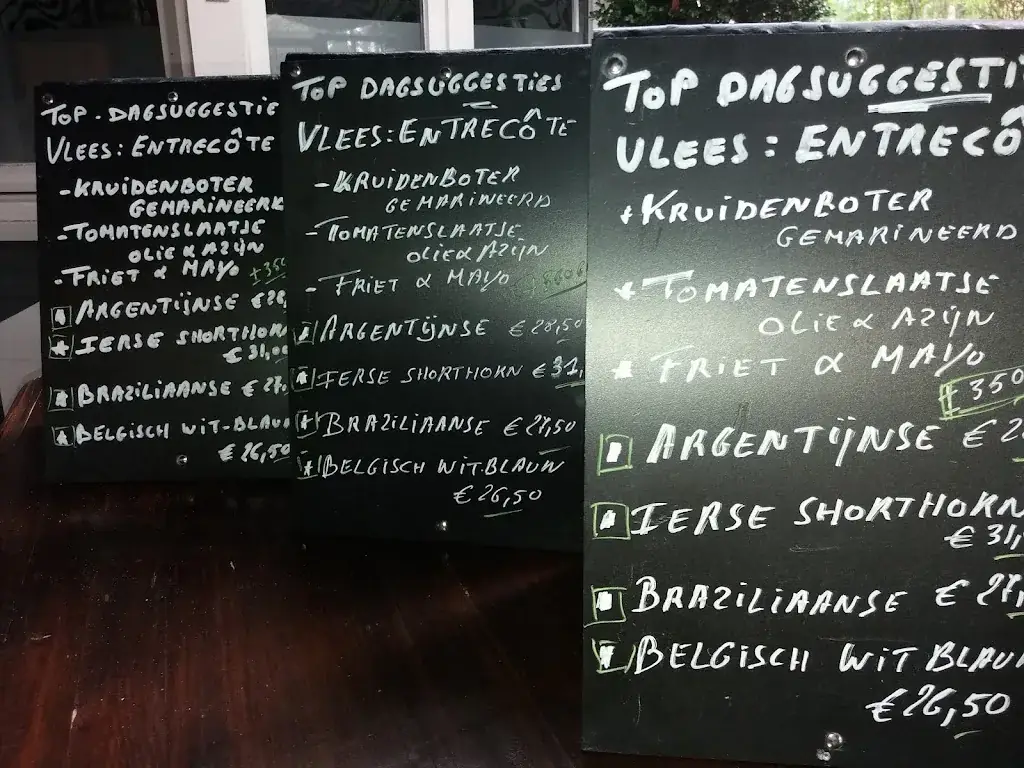 TOP - DAGSUGGESTIE
VLEES: ENTRECÔTE
- KRUIDENBOTER
GEMARINEERD
- TOMATENSLAATJE
OLIE & AZIJN
- FRIET & MAYO
+350
ARGENTIJNSE €26
IERSE SHORTHORN
€31,00
BRAZILIAANSE €27,
BELGISCH WIT-BLAU
€26,50
TOP DAGSUGGESTIES
VLEES: ENTRECÔTE
- KRUIDENBOTER
GEMARINEERD
- TOMATENSLAATJE
OLIE & AZIJN
- FRIET & MAYO
ARGENTIJNSE €28,50
IERSE SHORTHORN €31,
BRAZILIAANSE €27,50
BELGISCH WIT.BLAUW
€26,50
TOP DAGSUGGESTI
VLEES: ENTRECÔ
KRUIDENBOTER
GEMARINEERD
TOMATENSLAATJE
OLIE & AZIJN
FRIET & MAYO
+350
ARGENTIJNSE €2
IERSE SHORTHORN
€31,
BRAZILIAANSE €27,
BELGISCH WIT BLAU
€26,50